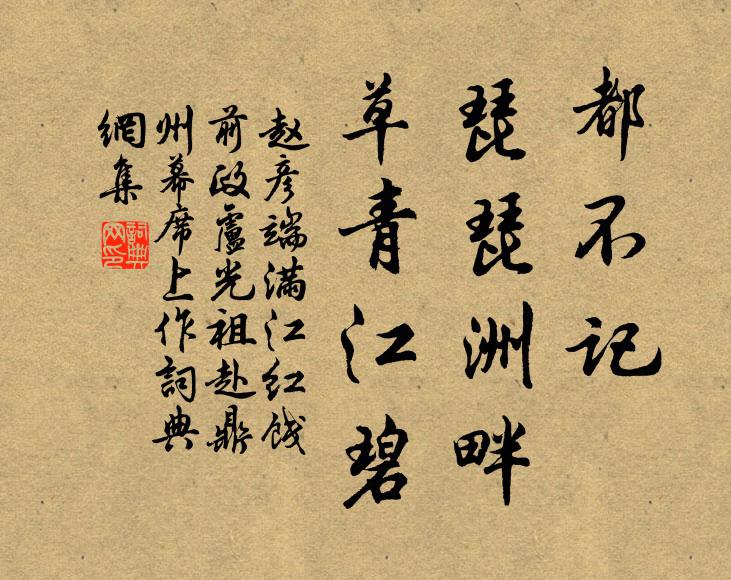 都不记
琵琶洲畔
草青江碧
赵彦端满江红饯
前政盧光祖赴鼎
州幕席上作詞典
網集
詞典网印